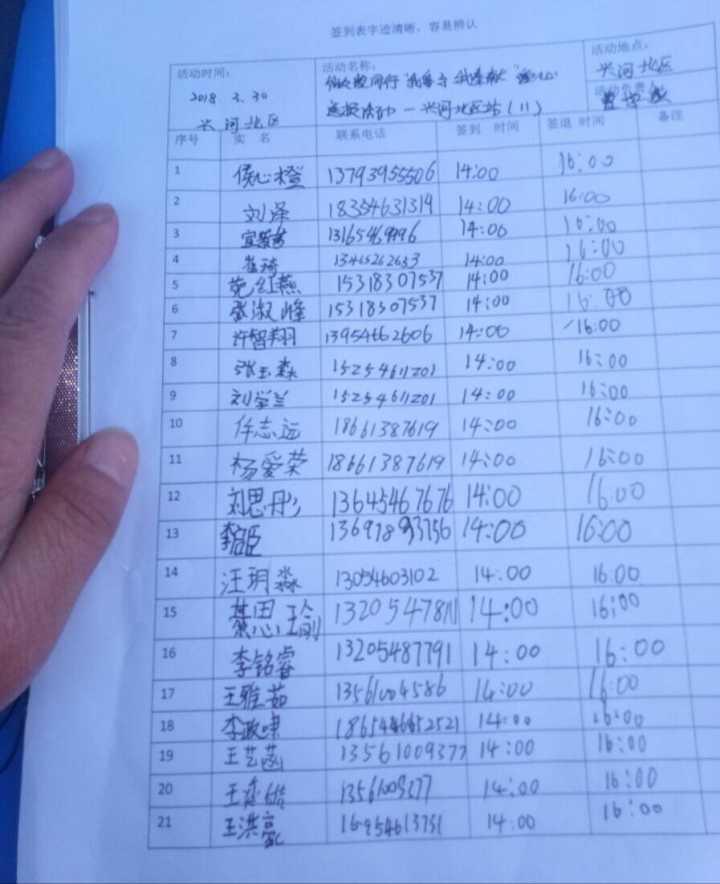 签到表字迹清晰,容易辨认
活动时间: 活动名称: 活动地点:
2018.3.30 兴河北区
兴河北区 一兴河北区站(11) 活动负责人
序号 实 名 联系电话 签到 时间 签退 时间 备注
1 侯心橙 13793955506 14:00 16:00
2 刘泽 18354631319 14:00 16:00
3 14:00 16:00
4 崔琦 13465262633 14:00 16:00
5 范红燕 15318307537 14:00 16:00
6 张淑峰 15318307537 14:00 16:00
7 许智翔 13954662606 14:00 16:00
8 张玉森 15254611201 14:00 16:00
9 刘学兰 15254611201 14:00 16:00
10 任志远 18661387619 14:00 16:00
11 杨爱荣 18661387619 14:00 16:00
12 刘思彤 13645467676 14:00 16:00
13 14:00 16:00
14 汪玥淼 13054603102 14:00 16:00
15 14:00 16:00
16 李铭睿 13205487791 14:00 16:00
17 王雅茹 13561004586 14:00 16:00
18 14:00 16:00
19 王艺菡 13561009377 14:00 16:00
20 14:00 16:00
21 王洪亮 14:00 16:00